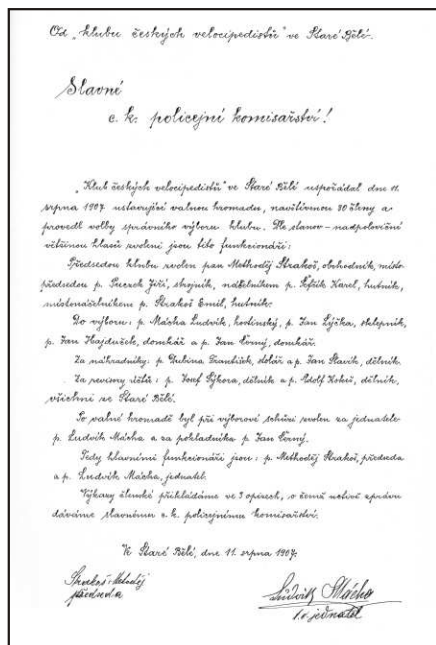 Od „klubu českých velocipedistů" ve Staré Bělé.
Slavné
c. k. policejní komisařství!
„Klub českých velocipedistů" ve Staré Bělé uspořádal dne 11.
srpna 1907 ustavující valnou hromadu, navštívenou 30 členy a
provedl volby správního výboru klubu. Dle stanov - nadpoloviční
většinou hlasů zvoleni jsou tito funkcionáři:
Předsedou klubu zvolen pan Methoděj Strakoš, obchodník, místo-
předsedou p. Jiří, strojník, náčelníkem p. Karel, hutník,
místonáčelníkem p. Strakoš Emil, hutník.
Do výboru: p. Mácha Ludvík, hostinský, p. Jan Lyčka, sklepník,
p. Jan Hajduček, domkář a p. Jan Černý, domkář.
Za náhradníky: p. Dubina František, kolář a p. Jan Slavík, dělník.
Za revisory účtů: p. Josef Sýkora, dělník a p. Adolf dělník,
všichni ze Staré Bělé.
Po valné hromadě byl při výborové schůzi zvolen za jednatele
p. Ludvík Mácha a za pokladníka p. Jan Černý.
Tedy hlavními funkcionáři jsou: p. Methoděj Strakoš, předseda
a p. Ludvík Mácha, jednatel.
Výkazy členské přikládáme ve 3 opisech, o čemž uctivě zprávu
dáváme slavnému c. k. policejnímu komisařství.
Ve Staré Bělé, dne 11. srpna 1907.
Strakoš Metoděj
předseda
Ludvík Mácha
jednatel